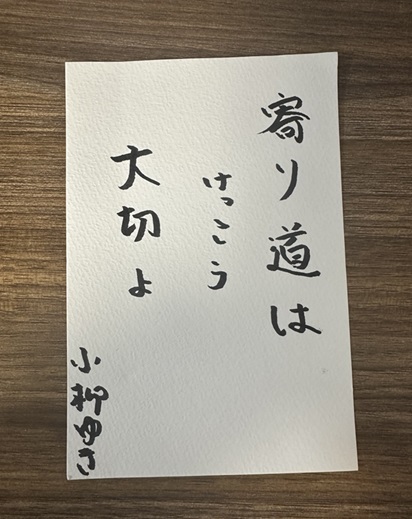 寄り道は
けっこう
大切よ
小柳ゆき